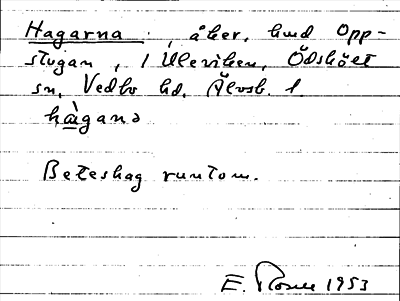 Hagarna, åker, hmd Opp-
stugan, 1 Uleviken, Ödskölt
sn, Vedbo hd, Älvsb. l.
hàganə
Beteshag runtom.
E. 1953